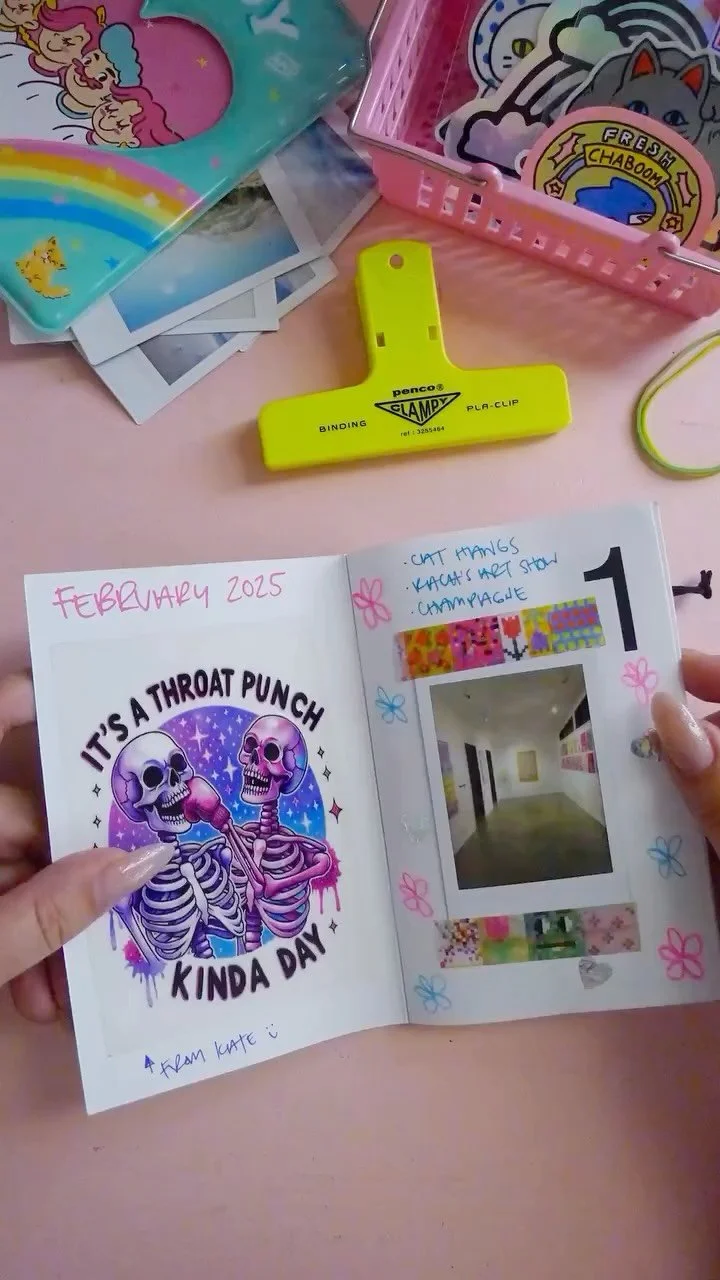 FRESH
CHABOOM
penco®
CLAMPY
BINDING
PLA-CLIP
ref : 3255464
FEBRUARY 2025
IT'S A THROAT PUNCH
KINDA DAY
↑ FROM KATE :)
· CAT HANGS
· KACHA'S ART SHOW
· CHAMPAGNE
1